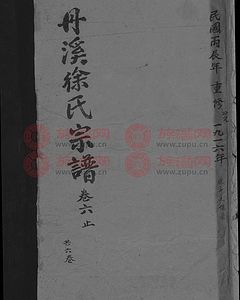 民國丙辰年 重修
一九一六年
丹溪徐氏宗譜 卷六止
共六卷
族譜網
www.zupu.cn